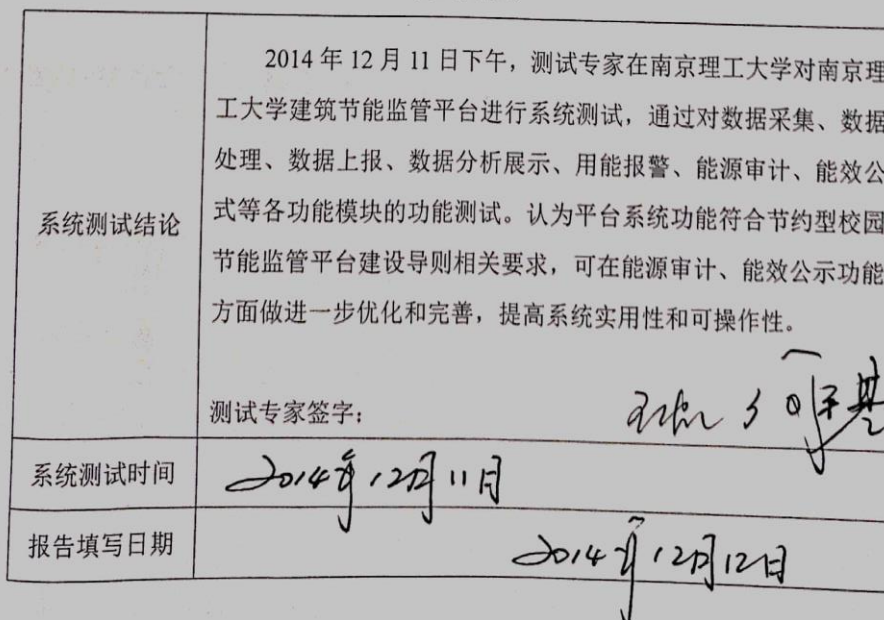 2014 年 12 月 11 日下午，测试专家在南京理工大学对南京理
工大学建筑节能监管平台进行系统测试，通过对数据采集、数据
处理、数据上报、数据分析展示、用能报警、能源审计、能效公
式等各功能模块的功能测试。认为平台系统功能符合节约型校园
系统测试结论
节能监管平台建设导则相关要求，可在能源审计、能效公示功能
方面做进一步优化和完善，提高系统实用性和可操作性。
测试专家签字：
系统测试时间
2014年12月11日
报告填写日期
2014年12月12日